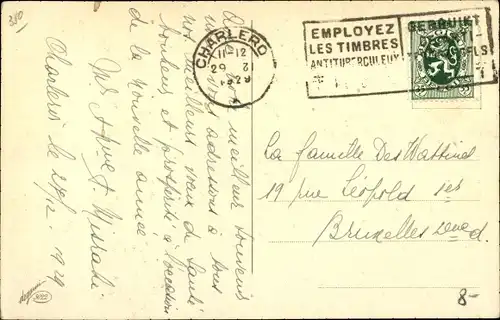 380
CHARLEROI
11-12
29
1929
EMPLOYEZ
LES TIMBRES
ANTITUBERCULEUX
GEBRUIKT
Avec meilleur souvenir
nous adressons à tous
nos meilleurs vœux de santé
bonheur et prospérité à l'occasion
de la nouvelle année.
Mr &
Charleroi le 28/12 1929
La famille Des Wattines
19 rue Léopold
Bruxelles
8-